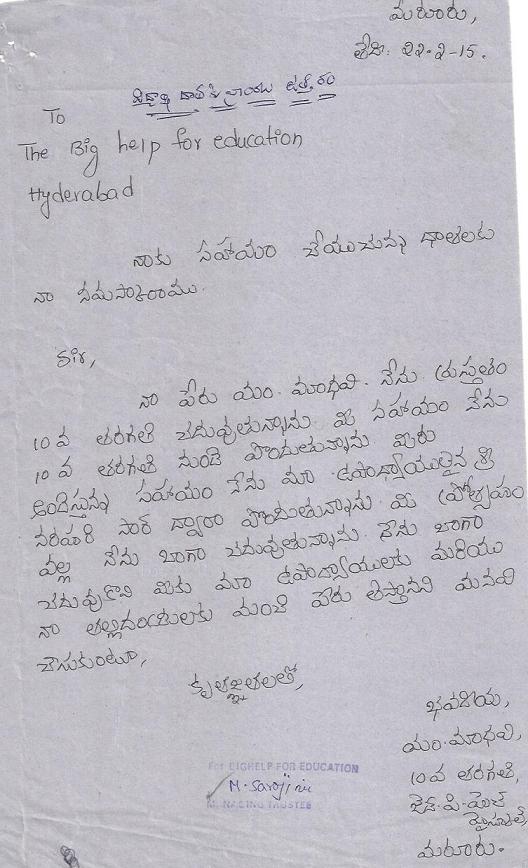 మరూరు,
తేది: 22-2-15.
విద్యార్థి దాతకి వ్రాయు ఉత్తరం
To
The Big help for education
Hyderabad
నాకు సహాయం చేయుచున్న దాతలకు
నా నమస్కారాము.
Sir,
నా పేరు యం. మాధవి. నేను ప్రస్తుతం
10 వ తరగతి చదువుతున్నాను మీ సహాయం నేను
10 వ తరగతి నుండి పొందుతున్నాను మీరు
అందిస్తున్న సహాయం నేను మా ఉపాధ్యాయులైన శ్రీ
నరహరి సార్ ద్వారా పొందుతున్నాను. మీ ప్రోత్సహం
వల్ల నేను బాగా చదువుతున్నాను. నేను బాగా
చదువుకొని మీకు మా ఉపాధ్యాయులకు మరియు
నా తల్లిదండ్రులకు మంచి పేరు తెస్తానని మనవి
చేసుకుంటూ,
కృతజ్ఞతలతో,
భవదీయ,
యం. మాధవి,
10వ తరగతి,
జెడ్.పి.హెచ్
హైస్కూల్,
మరూరు.
For BIGHELP FOR EDUCATION
M. Sarojini
MANAGING TRUSTEE